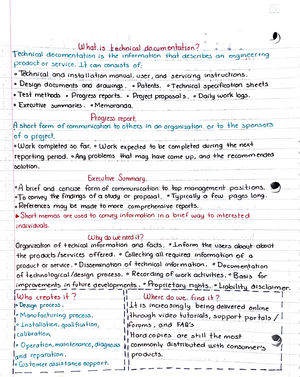 What is technical documentation?
Technical documentation is the information that describes an engineering
product or service. It can consists of:
• Technical and installation manual, user, and servicing instructions.
• Design documents and drawings. • Patents. • Technical specification sheets
• Test methods • Progress reports. • Project proposals. • Daily work logs.
• Executive summaries. • Memoranda.
Progress report.
A short form of communication to others in an organisation or to the sponsors
of a project.
• Work completed so far. • Work expected to be completed during the next
reporting period. • Any problems that may have come up, and the recommended
solution.
Executive Summary.
• A brief and concise form of communication to top management positions.
• To convey the findings of a study or proposal. • Typically a few pages long.
• References may be made to more comprehensive reports.
▶ Short memos are used to convey information in a brief way to interested
individuals.
Why do we need it?
Organization of techical information and facts. • Inform the users about about
the products/services offered. • Collecting all required information of a
product or service. • Dissemination of technical information. • Documentation
of technological/design process. • Recording of work activities. • Basis for
improvements in future developments. • Proprietary rights. • Liability disclaimer.
Who creates it?
• Design process.
• Manufacturing process.
• Installation, qualification,
calibration,
• Operation, maintenance, diagnosis
and reparation.
• Customer assistance support.
Where do we find it?
It is increasingly being delivered online
through video tutorials, support portals /
forums, and FAQ's
Hard copies are still the most
commonly distributed with consumer's
products.